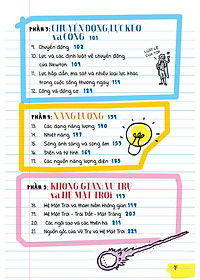 PHẦN 3: CHUYỂN ĐỘNG, LỰC KÉO
và CÔNG 101
9. Chuyển động 102
10. Lực và các định luật về chuyển động
của Newton 109
11. Lực hấp dẫn, ma sát và nhiều loại lực khác
trong cuộc sống thường ngày 119
12. Công và động cơ 129
PHẦN 4: NĂNG LƯỢNG 139
13. Các dạng năng lượng 140
14. Nhiệt năng 147
15. Sóng ánh sáng và sóng âm 153
16. Điện và từ tính 169
17. Các nguồn năng lượng điện 183
PHẦN 5: KHÔNG GIAN: VŨ TRỤ
và HỆ MẶT TRỜI 193
18. Hệ Mặt Trời và thám hiểm không gian 194
19. Hệ Mặt Trời - Trái Đất - Mặt Trăng 207
20. Các ngôi sao và các thiên hà 219
21. Nguồn gốc của Vũ Trụ và Hệ Mặt Trời